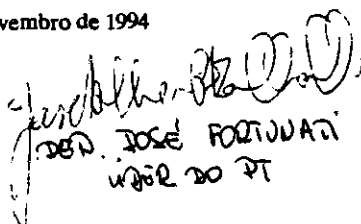 vembro de 1994
DEP. JOSÉ FORTUNATI
LÍDER DO PT